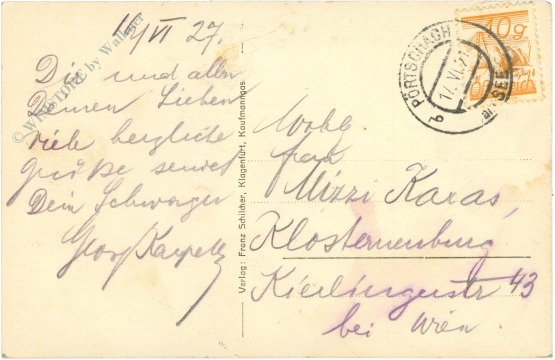 17/VI 27.
Dir und allen
Deinen Lieben
viele herzliche
Grüße sendet
Dein Schwager
Georg
©WINSTORE by Wallner
Verlag: Franz Schilcher, Klagenfurt, Kaufmanngas
PÖRTSCHACH
am SEE
17.VI.27
b
10g
Wohlg
Frau
Mizzi Karas,
Klosterneuburg
Kierlingerstr 43
bei Wien